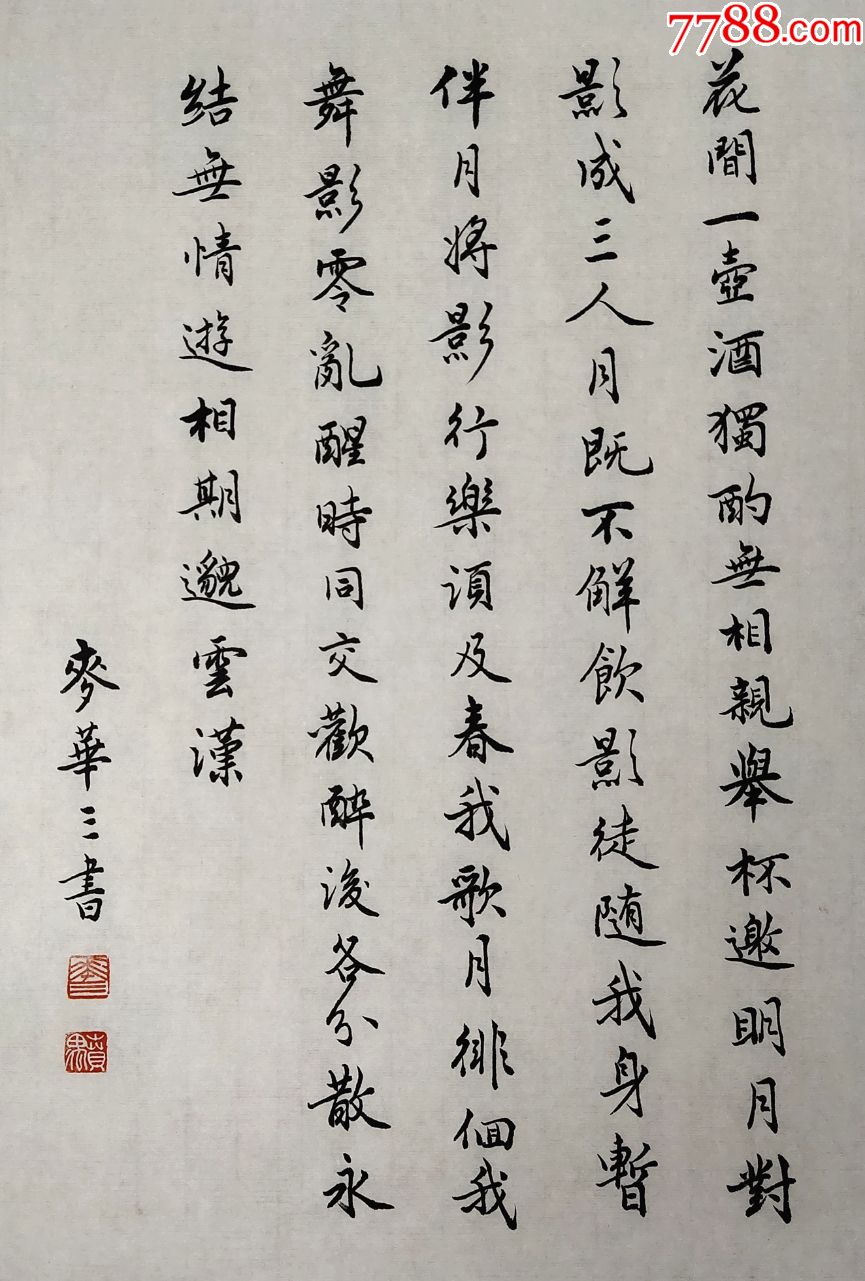 7788.com
花間一壺酒獨酌無相親舉杯邀明月對
影成三人月既不解飲影徒隨我身暫
伴月將影行樂須及春我歌月徘徊我
舞影零亂醒時同交歡醉後各分散永
結無情遊相期邈雲漢
麥華三書